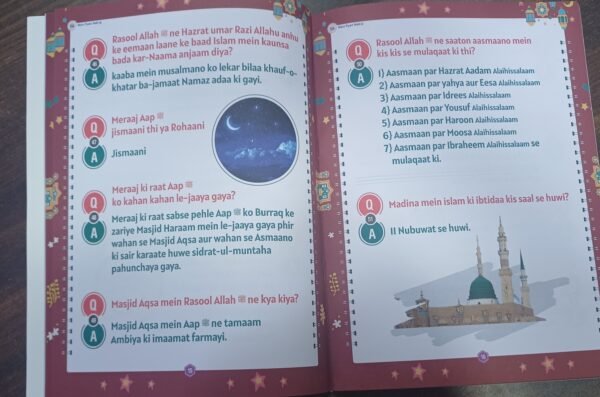 Rasool Allah ﷺ ne Hazrat umar Razi Allahu anhu
ke eemaan laane ke baad Islam mein kaunsa
bada kar-Naama anjaam diya?
Q
46
A
kaaba mein musalmano ko lekar bilaa khauf-o-
khatar ba-jamaat Namaz adaa ki gayi.
Meraaj Aap ﷺ
jismaani thi ya Rohaani
Q
47
A
Jismaani
Meraaj ki raat Aap ﷺ
ko kahan kahan le-jaaya gaya?
Q
48
A
Meraaj ki raat sabse pehle Aap ﷺ ko Burraq ke
zariye Masjid Haraam mein le-jaaya gaya phir
wahan se Masjid Aqsa aur wahan se Asmaano
ki sair karaate huwe sidrat-ul-muntaha
pahunchaya gaya.
Masjid Aqsa mein Rasool Allah ﷺ ne kya kiya?
Q
49
A
Masjid Aqsa mein Aap ﷺ ne tamaam
Ambiya ki imaamat farmayi.
15
Rasool Allah ﷺ ne saaton aasmaano mein
kis kis se mulaqaat ki thi?
Q
50
A
1) Aasmaan par Hazrat Aadam Alaihissalaam
2) Aasmaan par yahya aur Eesa Alaihissalaam
3) Aasmaan par Idrees Alaihissalaam
4) Aasmaan par Yousuf Alaihissalaam
5) Aasmaan par Haroon Alaihissalaam
6) Aasmaan par Moosa Alaihissalaam
7) Aasmaan par Ibraheem Alaihissalaam se
mulaqaat ki.
Q
51
A
Madina mein islam ki ibtidaa kis saal se huwi?
11 Nubuwat se huwi.
16